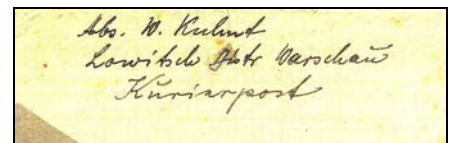 Abs. W. Kuhnt
Lowitsch Distr Warschau
Kurierpost